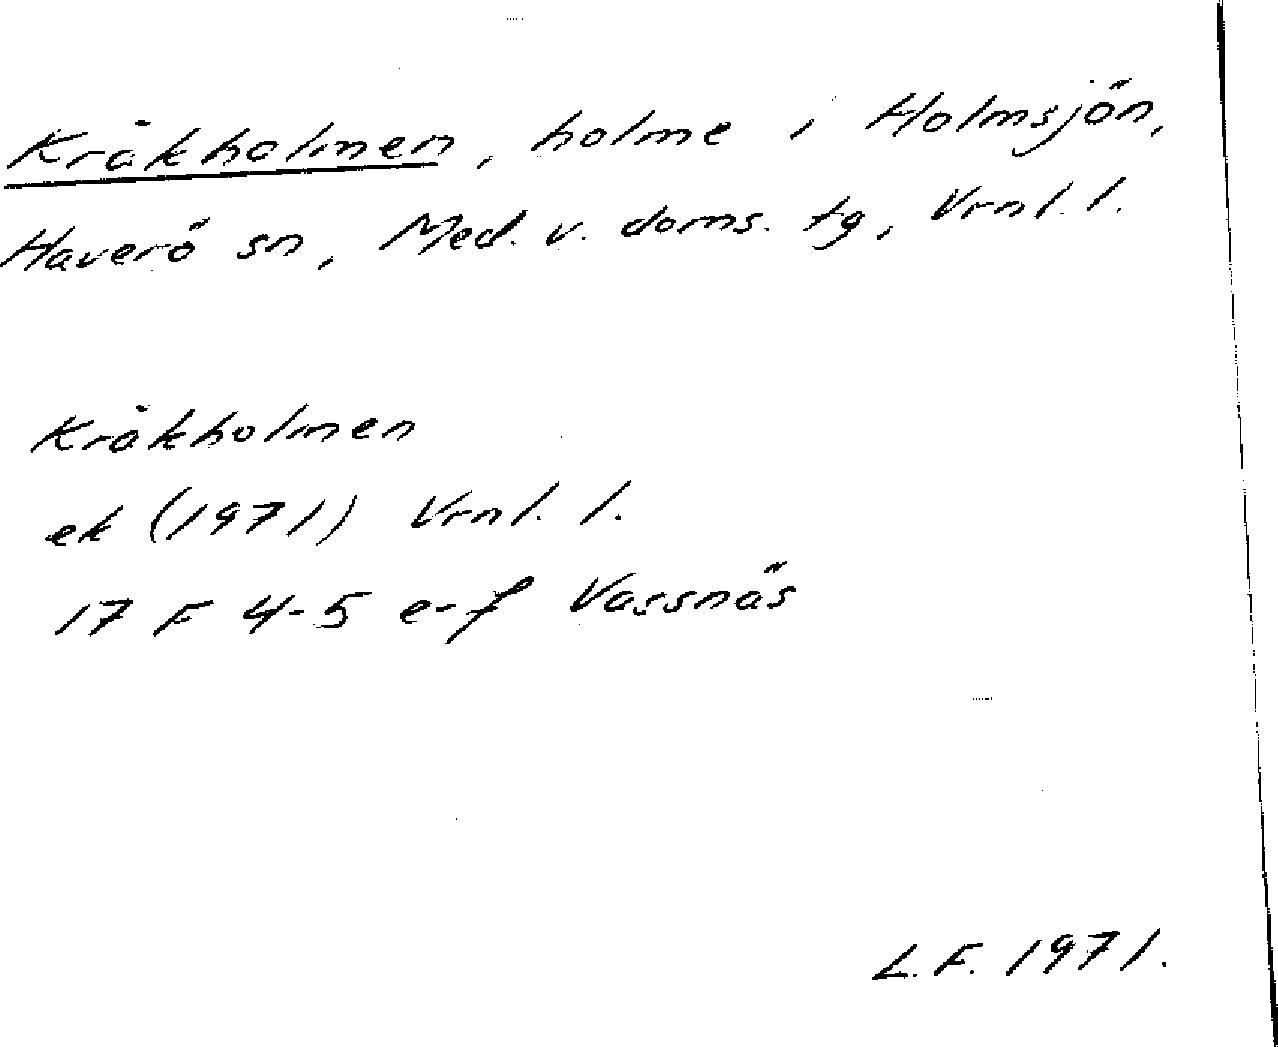 Kråkholmen, holme i Holmsjön,
Haverö sn, Med. v. doms. tg, Vrnl. l.
Kråkholmen
ek (1971) Vrnl. l.
17 F 4-5 e-f Vassnäs
L.F. 1971.